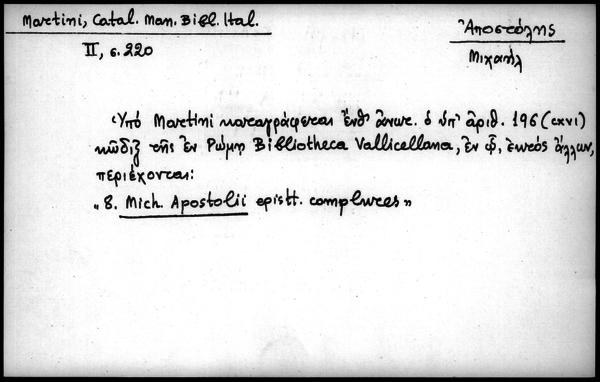 Martini, Catal. Man. Bibl. Ital.
II, σ. 220
Ἀποστόλης
Μιχαήλ
Ὑπὸ Martini καταγράφεται ἔνθ' ἀνωτ. ὁ ὑπ' ἀριθ. 196 (CXVI)
κῶδιξ τῆς ἐν Ρώμῃ Bibliotheca Vallicellana, ἐν ᾧ, ἐκτὸς ἄλλων,
περιέχονται:
„8. Mich. Apostolii epistt. complures"